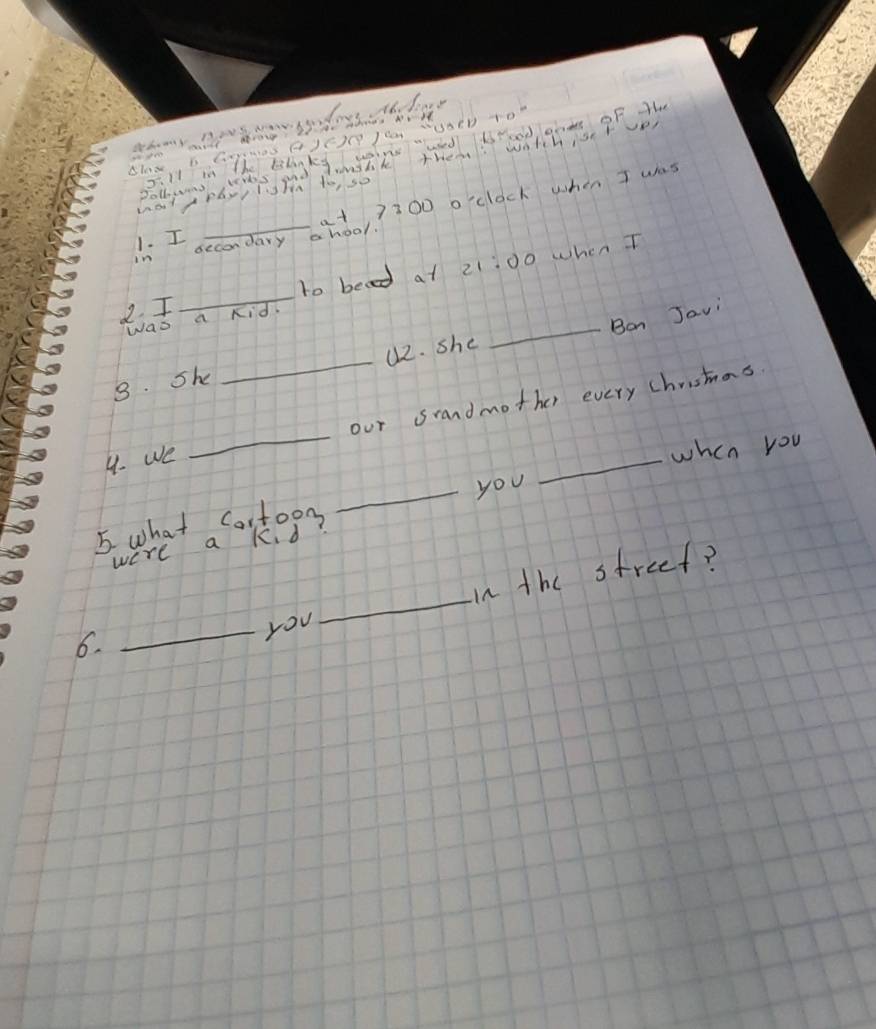 "used to"
Fill in the blanks using "used to" and one of the
following verbs and translate them: watch, get up,
visit, play, listen to, go
1. I ________ at 7:00 o'clock when I was
in secondary shool.
2. I ________ to bead at 21:00 when I
was a kid.
3. She ________ U2. she ________ Bon Javi
4. we ________ our grandmother every christmas.
5. what cartoon ________ you ________ when you
were a kid?
6. ________ you ________ in the street?